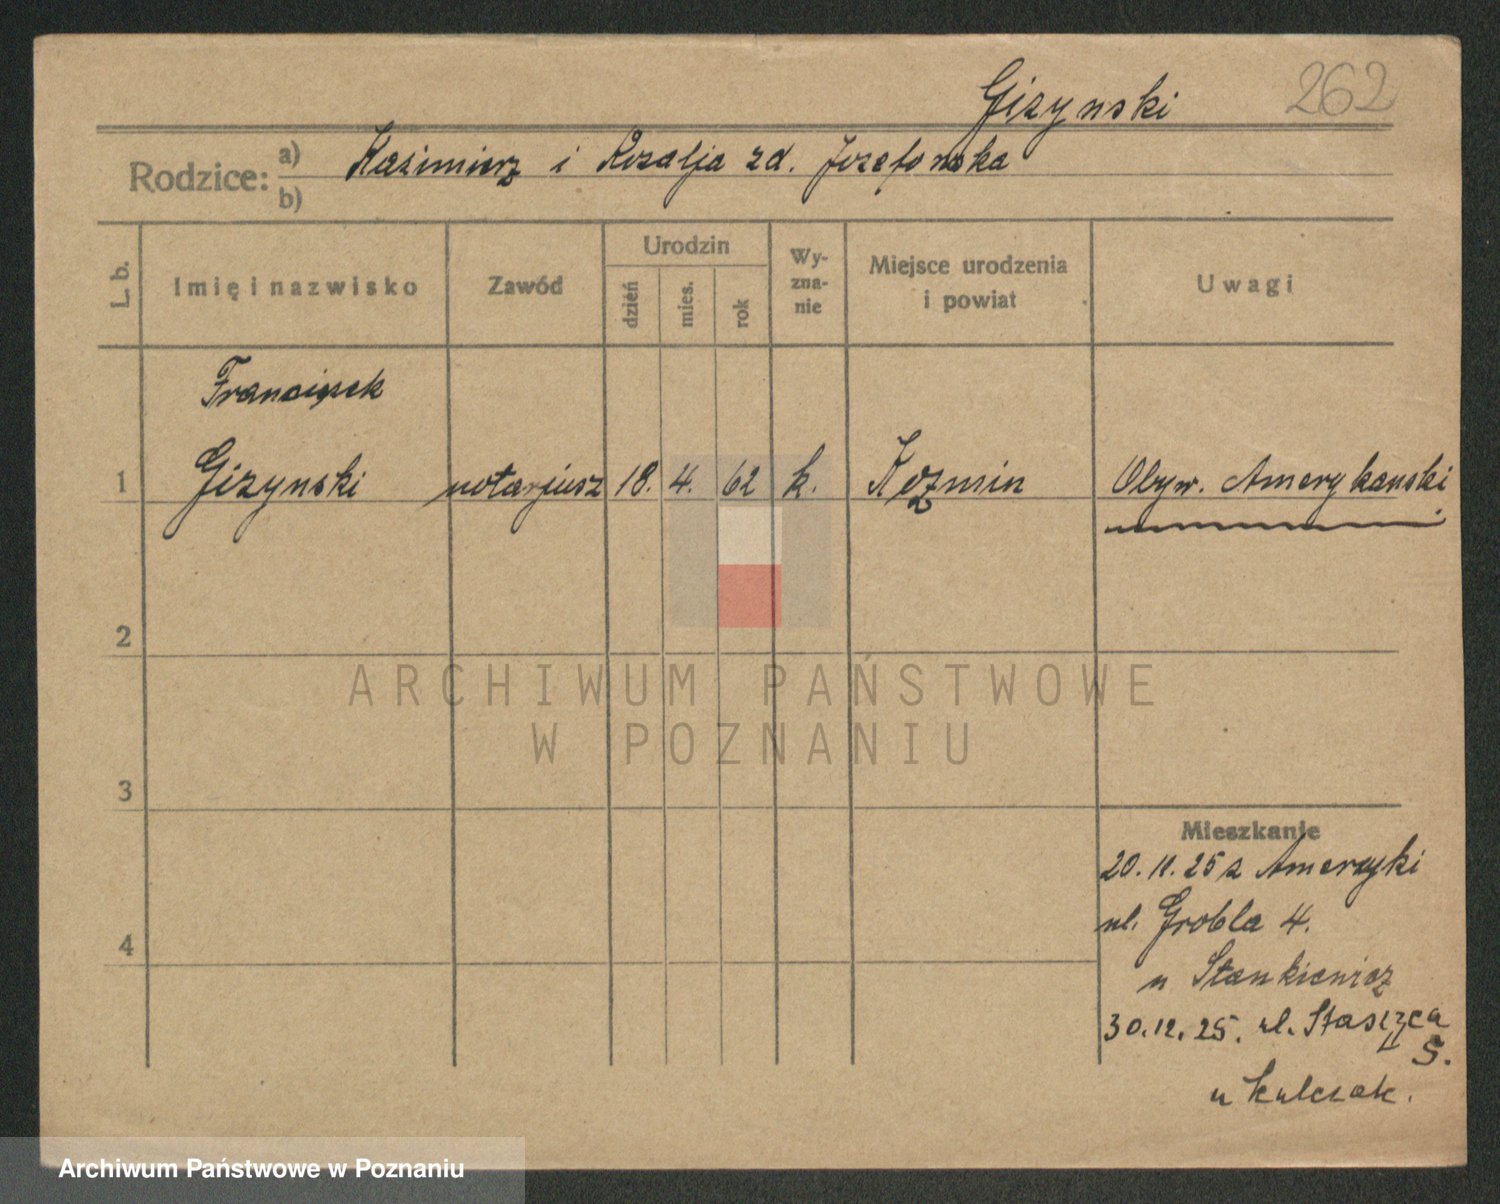 Gizynski 262
Rodzice: a) Kazimierz i Rozalja zd. Jozefowska
b)
L. b. Imię i nazwisko Zawód Urodzin Wyznanie Miejsce urodzenia i powiat Uwagi
dzień mies. rok
Franciszek
1 Gizynski notarjusz 18. 4. 62 k. Kozmin Obyw. Amerykanski
2
ARCHIWUM PAŃSTWOWE
W POZNANIU
3
Mieszkanie
20.11.25 z Ameryki
ul. Grobla 4.
4
u Stankiewicz
30.12.25. ul. Staszca
5.
u Kulczak.
Archiwum Państwowe w Poznaniu